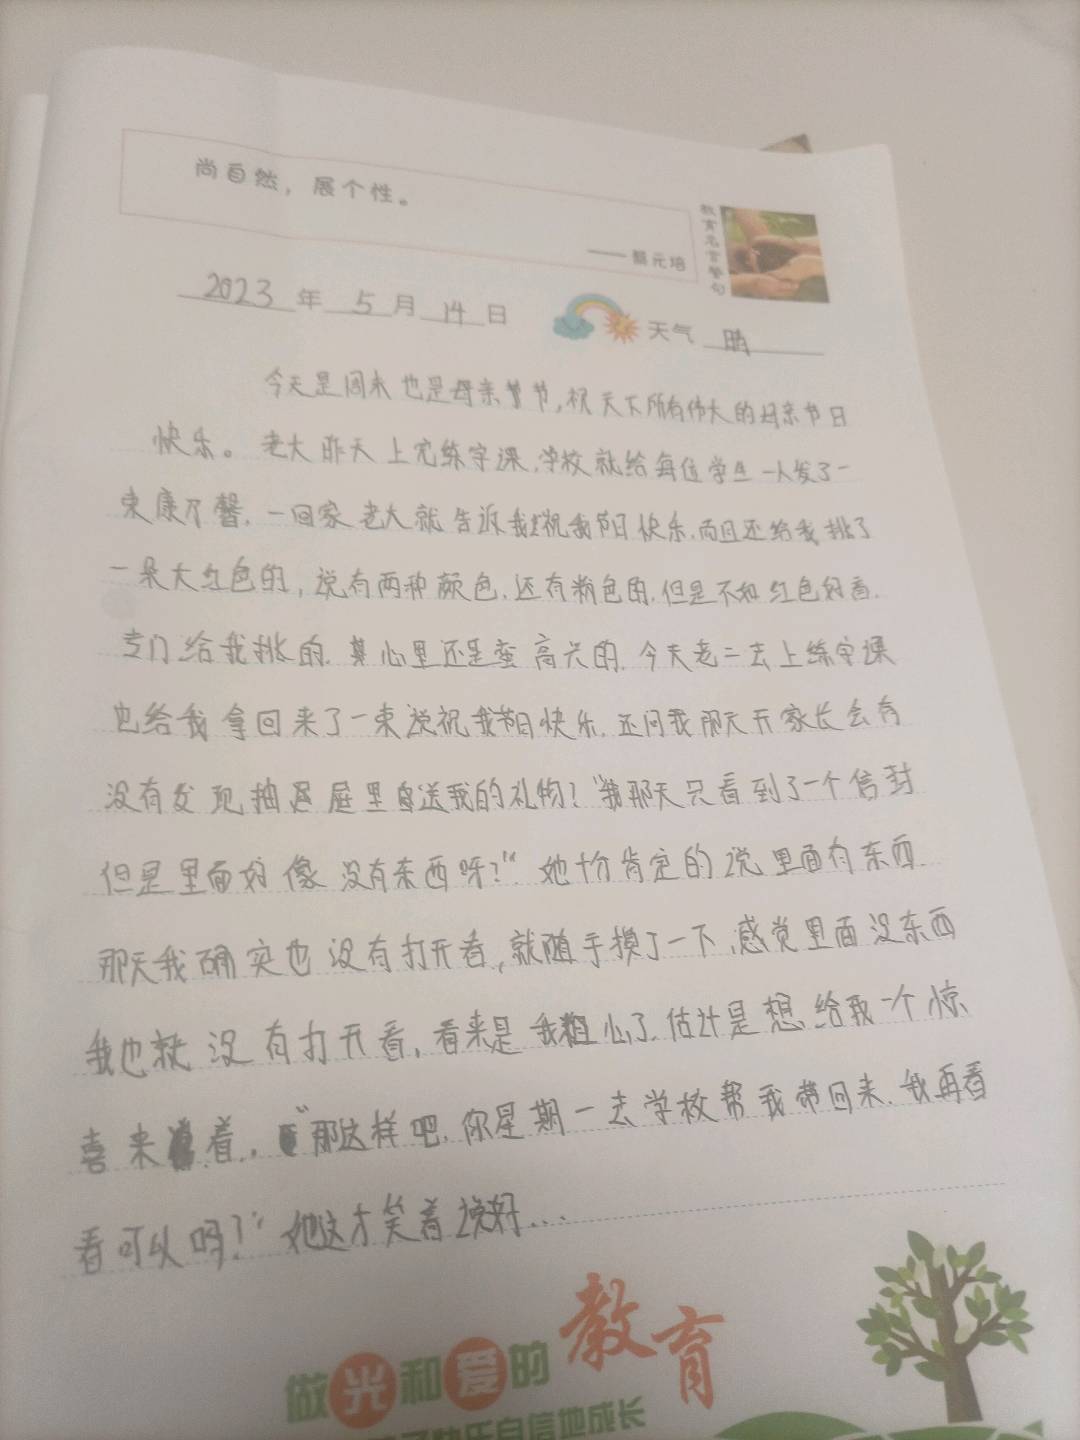 尚自然，展个性。
——蔡元培
教育名言警句
2023年5月14日
天气 晴
今天是周末也是母亲节,祝天下所有伟大的母亲节日
快乐。老大昨天上完练字课,学校就给每位学生一人发了一
束康乃馨,一回家老大就告诉我祝我节日快乐,而且还给我挑了
一朵大红色的,说有两种颜色,还有粉色的,但是不如红色好看,
专门给我挑的,其心里还是蛮高兴的,今天老二去上练字课
也给我拿回来了一束说祝我节日快乐,还问我那天开家长会有
没有发现抽屉里送我的礼物?"我那天只看到了一个信封
但是里面好像没有东西呀?"她十分肯定的说里面有东西
那天我确实也没有打开看,就随手摸了一下,感觉里面没东西
我也就没有打开看,看来是我粗心了,估计是想给我一个惊
喜来着,"那这样吧,你星期一去学校帮我带回来,我再看
看可以吗?"她这才笑着说好...
做光和爱的教育
快乐自信地成长